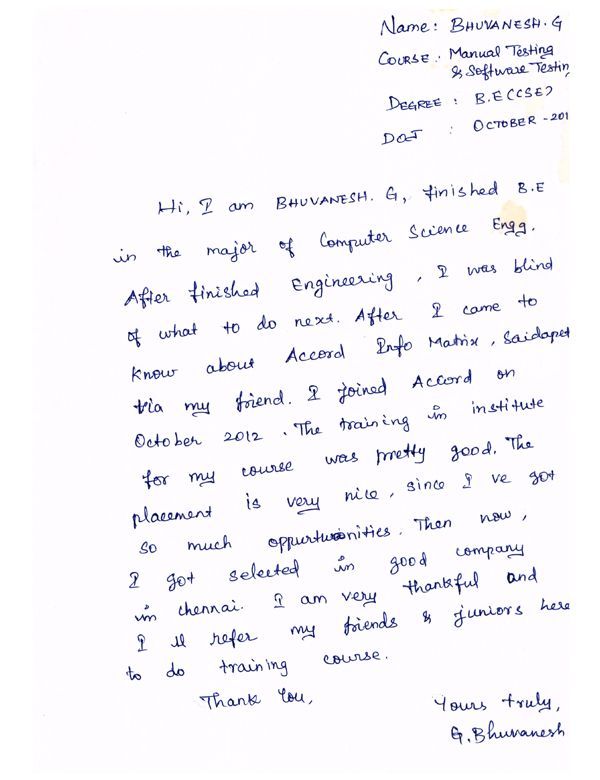 Name: BHUVANESH. G
COURSE: Manual Testing
& Software Testin
DEGREE : B.E (CSE)
DOJ : OCTOBER - 201
Hi, I am BHUVANESH. G, finished B.E
in the major of Computer Science Engg.
After finished Engineering, I was blind
of what to do next. After I came to
know about Accord Info Matrix, Saidapet
via my friend. I joined Accord on
October 2012. The training in institute
for my course was pretty good. The
placement is very nice, since I ve got
so much oppurtunities. Then now,
I got selected in good company
in chennai. I am very thankful and
I ll refer my friends & juniors here
to do training course.
Thank You,
Yours truly,
G. Bhuvanesh